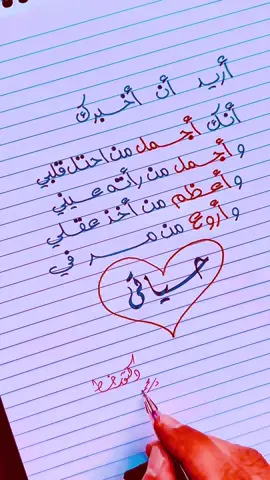 أريد أن أخبرك
أنك أجمل من احتل قلبي
وأجمل من رأته عيني
وأعظم من أخذ عقلي
وأروع من مر في
حياتي